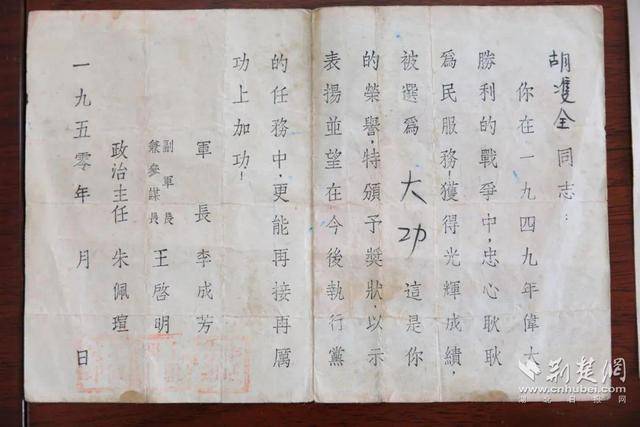 胡全同志：
你在一九四九年偉大
勝利的戰爭中，忠心耿耿
爲民服務！獲得光輝成績，
被選爲 大功 這是你
的榮譽，特頒予獎狀，以示
表揚並望在今後執行黨
的任務中，更能再接再厲
功上加功！
軍 長 李成芳
副軍長
兼參謀長 王啓明
政治主任 朱佩瑄
一九五零年 月 日
荆楚網
www.cnhubei.com
湖北日报网